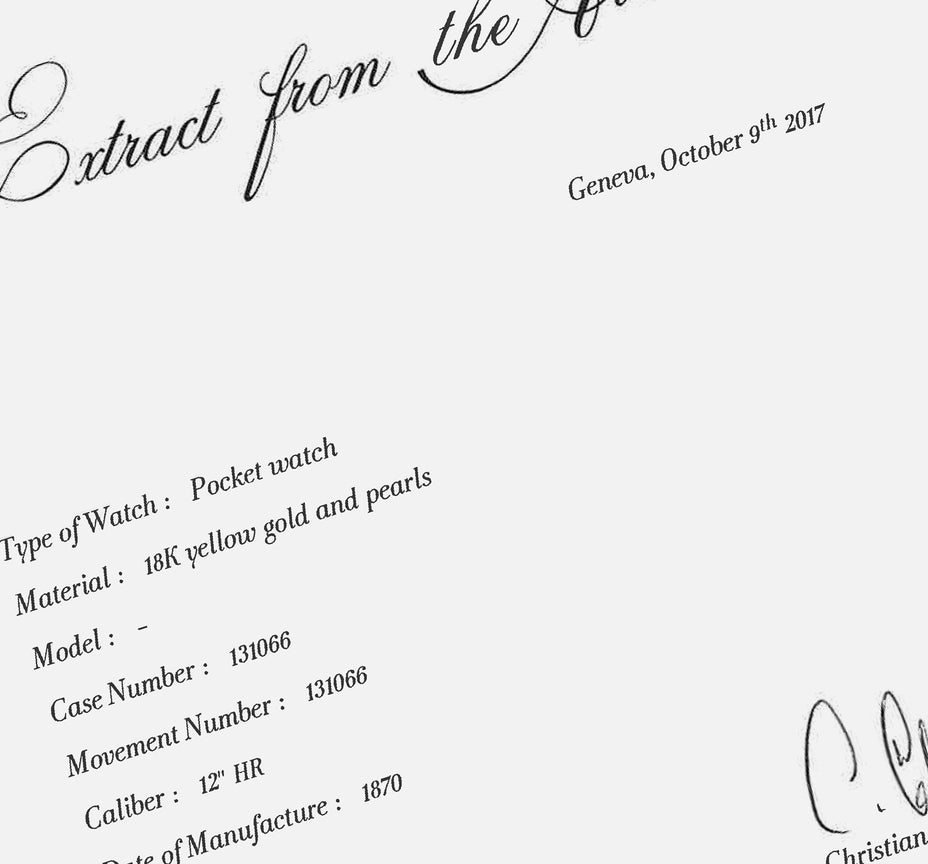 Extract from the
Geneva, October 9th 2017
Type of Watch : Pocket watch
Material : 18K yellow gold and pearls
Model : -
Case Number : 131066
Movement Number : 131066
Caliber : 12" HR
Date of Manufacture : 1870
Christian